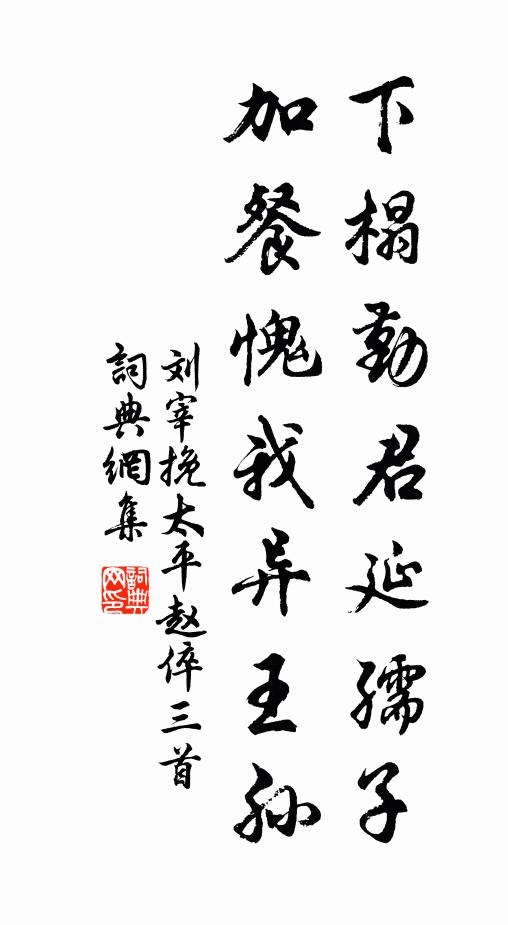 下榻勤君延孺子
加餐愧我异王孙
刘宰挽太平赵倅三首
詞典網集
詞典網印